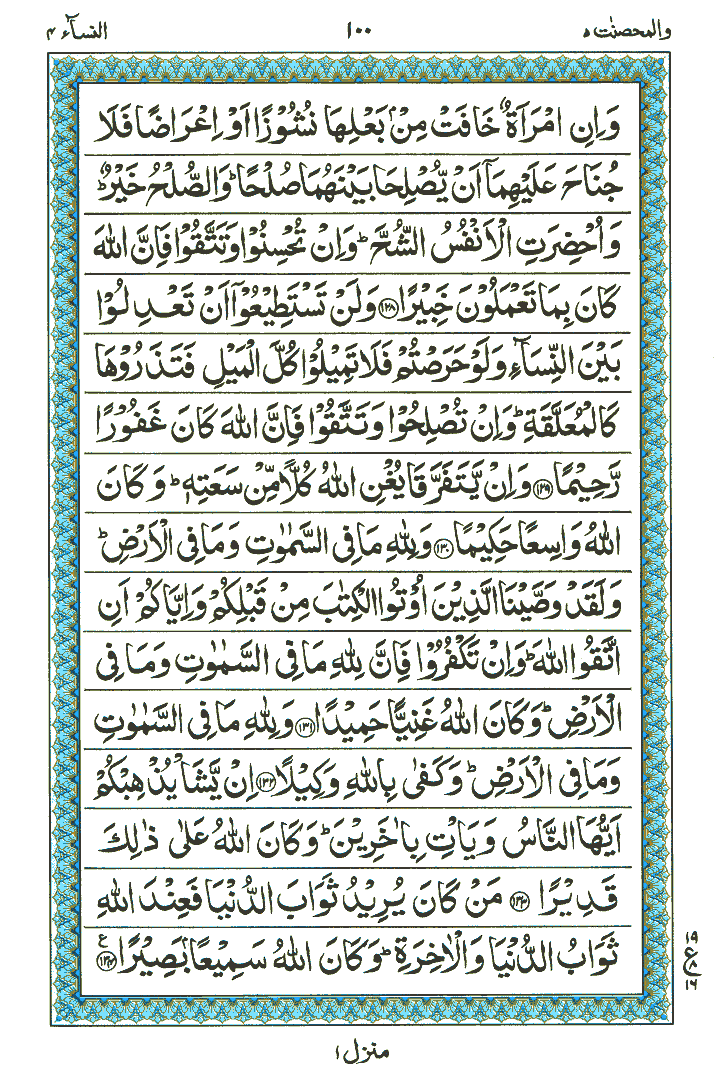 والمحصنت ٥ ١٠٠ النسآء ٤
وَاِنِ امْرَاَةٌ خَافَتْ مِنْۢ بَعْلِهَا نُشُوْزًا اَوْ اِعْرَاضًا فَلَا
جُنَاحَ عَلَيْهِمَاۤ اَنْ يُّصْلِحَا بَيْنَهُمَا صُلْحًا ؕ وَالصُّلْحُ خَيْرٌ ؕ
وَاُحْضِرَتِ الْاَنْفُسُ الشُّحَّ ؕ وَاِنْ تُحْسِنُوْا وَتَتَّقُوْا فَاِنَّ اللّٰهَ
كَانَ بِمَا تَعْمَلُوْنَ خَبِيْرًا ﴿١٢٨﴾ وَلَنْ تَسْتَطِيْعُوْۤا اَنْ تَعْدِلُوْا
بَيْنَ النِّسَآءِ وَلَوْ حَرَصْتُمْ فَلَا تَمِيْلُوْا كُلَّ الْمَيْلِ فَتَذَرُوْهَا
كَالْمُعَلَّقَةِ ؕ وَاِنْ تُصْلِحُوْا وَتَتَّقُوْا فَاِنَّ اللّٰهَ كَانَ غَفُوْرًا
رَّحِيْمًا ﴿١٢٩﴾ وَاِنْ يَّتَفَرَّقَا يُغْنِ اللّٰهُ كُلًّا مِّنْ سَعَتِهٖ ؕ وَكَانَ
اللّٰهُ وَاسِعًا حَكِيْمًا ﴿١٣٠﴾ وَلِلّٰهِ مَا فِى السَّمٰوٰتِ وَمَا فِى الْاَرْضِ ؕ
وَلَقَدْ وَصَّيْنَا الَّذِيْنَ اُوْتُوا الْكِتٰبَ مِنْ قَبْلِكُمْ وَاِيَّاكُمْ اَنِ
اتَّقُوا اللّٰهَ ؕ وَاِنْ تَكْفُرُوْا فَاِنَّ لِلّٰهِ مَا فِى السَّمٰوٰتِ وَمَا فِى
الْاَرْضِ ؕ وَكَانَ اللّٰهُ غَنِيًّا حَمِيْدًا ﴿١٣١﴾ وَلِلّٰهِ مَا فِى السَّمٰوٰتِ
وَمَا فِى الْاَرْضِ ؕ وَكَفٰى بِاللّٰهِ وَكِيْلًا ﴿١٣٢﴾ اِنْ يَّشَاْ يُذْهِبْكُمْ
اَيُّهَا النَّاسُ وَيَاْتِ بِاٰخَرِيْنَ ؕ وَكَانَ اللّٰهُ عَلٰى ذٰلِكَ
قَدِيْرًا ﴿١٣٣﴾ مَنْ كَانَ يُرِيْدُ ثَوَابَ الدُّنْيَا فَعِنْدَ اللّٰهِ
ثَوَابُ الدُّنْيَا وَالْاٰخِرَةِ ؕ وَكَانَ اللّٰهُ سَمِيْعًۢا بَصِيْرًا ﴿١٣٤﴾ ع
١٩
ع ٨
١٦
منزل ١